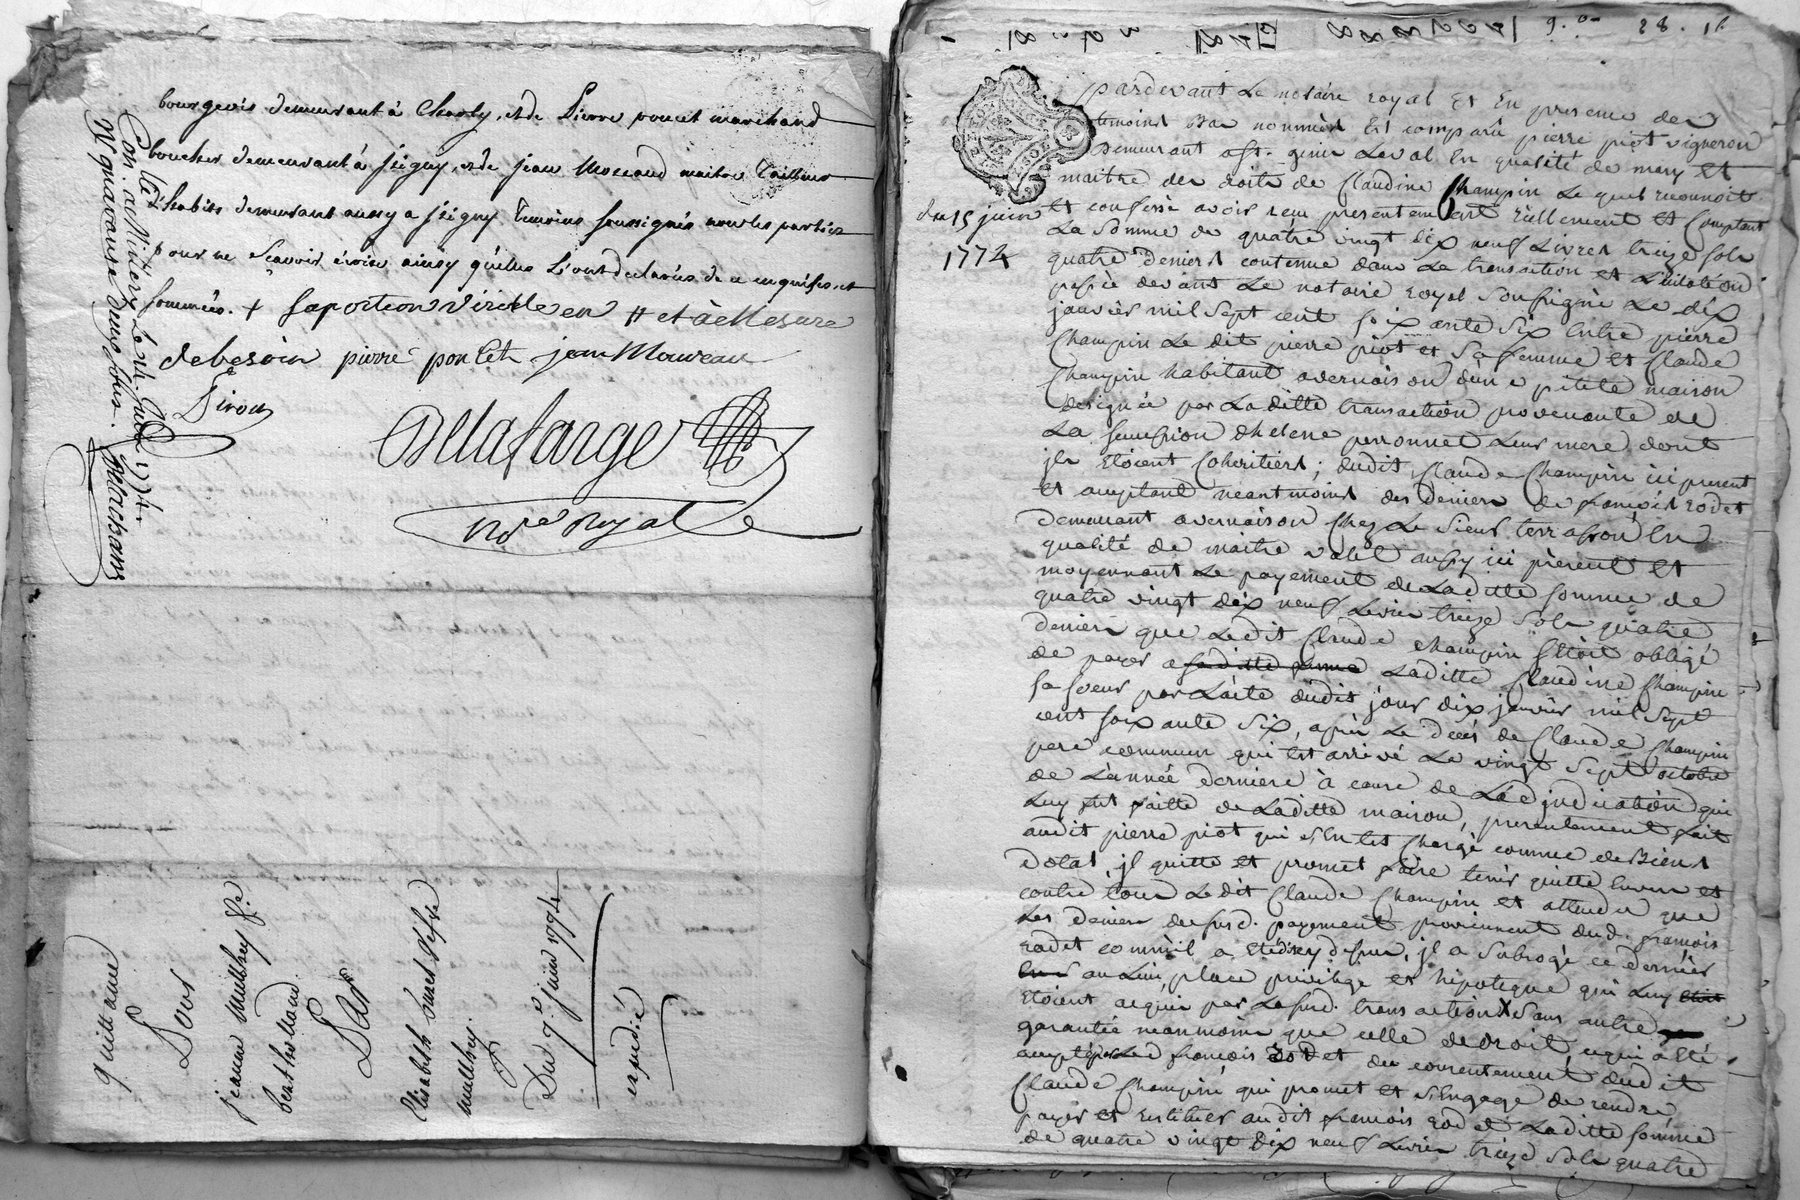 bourgeois demeurant à Charly, et de Pierre poncet marchand
boucher demeurant à jrigny, et de jean Moreaud maitre Tailleur
d'habits demeurant aussy a jrigny temoins soussignés non les parties
pour ne sçavoir écrire ainsy qu'elles l'ont declarées de ce enquises, et
sommées. + sa portion virille en # et à Mesure
de besoin pierre poncet jean Moureau
Piron
Delafarge
No.re Royal
Con. a St
Le vt. juin 1774.
R quarante deux sols.
quittance
Pour
jeanne Multhey fe.
berthollad
Par
Elisabeth buret Ve
multhey.
Du 9e juin 1774
expedié
9.
28. 
du 15 juin
1774
pardevant Le notaire royal Et En presence des
temoins Bas nommés Est comparu pierre piot vigneron
Demeurant a St. genis Laval En qualité de mary Et
maitre des droits de Claudine Champin Le quel reconnoit
Et confesse avoir reçu presentement réellement Et Comptant
La Somme de quatre vingt dix neuf Livres treize sols
quatre deniers contenue dans La transaction et Licitation
passée devant Le notaire royal Soussigné Le dix
janvier mil Sept cent soixante Six Entre pierre
Champin Le dit pierre piot et Sa femme et Claude
Champin habitant a vernaison d'une petite maison
designée par Laditte transaction provenante de
La succession d'helene perronnet Leur mere dont
ils Etoient Coheritiers; dudit Claude Champin ici present
Et acceptant neantmoins des deniers de francois rodet
demeurant a vernaison Chez Le Sieur terrasson En
qualité de maitre valet aussy ici present Et
moyennant Le payement de Laditte somme de
quatre vingt dix neuf Livres treize Sols quatre
deniers que Ledit Claude Champin Setoit obligé
de payer a saditte Laditte Claudine Champin
sa soeur par L'acte dudit jour dix janvier mil Sept
cent soixante Six, après Le Décès de Claude Champin
pere commun qui Est arrivé Le vingt Sept octobre
de L'année derniere à cause de L'adjudication qui
Luy fut faitte de Laditte maison, presentement fait
audit pierre piot qui s'En Est Chargé comme de Biens
dotal, il quitte et promet faire tenir quitte Envers et
contre tous Le dit Claude Champin Et attendu que
Les deniers du susd. payement proviennent dud. francois
rodet comme il a Eté dit cy dessus, il a Subrogé ce dernier
au Lieu, place privilege et hipoteque qui Luy
Etoient acquis par La susd. transaction X Sans autre
garantie neanmoins que celle de droit, ce qui a Eté
accepté par Led. francois Rodet du consentement dudit
Claude Champin qui promet et S'Engage de rendre
payer et restituer audit francois rodet Laditte somme
de quatre vingt Dix neuf Livres treize Sols quatre